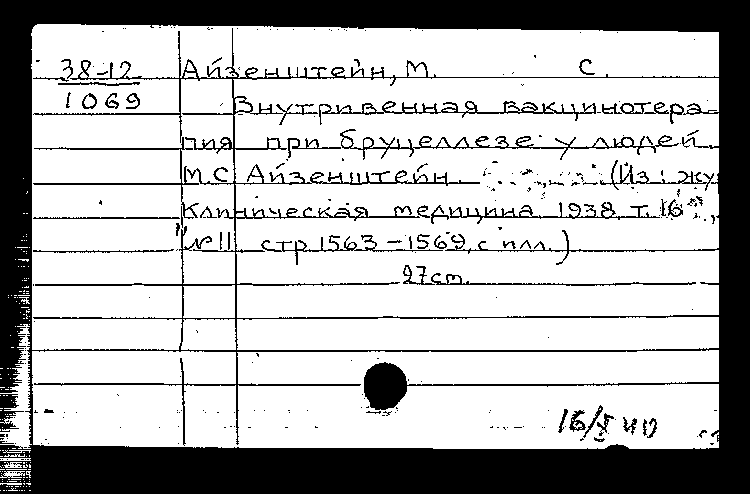 38-12
1069
Айзенштейн, М. С.
Внутривенная вакцинотера-
пия при бруцеллезе у людей.
М.С. Айзенштейн. (Из: жу
Клиническая медицина, 1938, т. 16
№ 11 стр 1563-1569, с илл.)
27 cm.
16/X 40